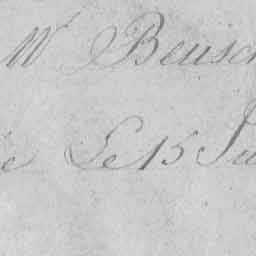 Mr Beusc
e Le 15 Ju